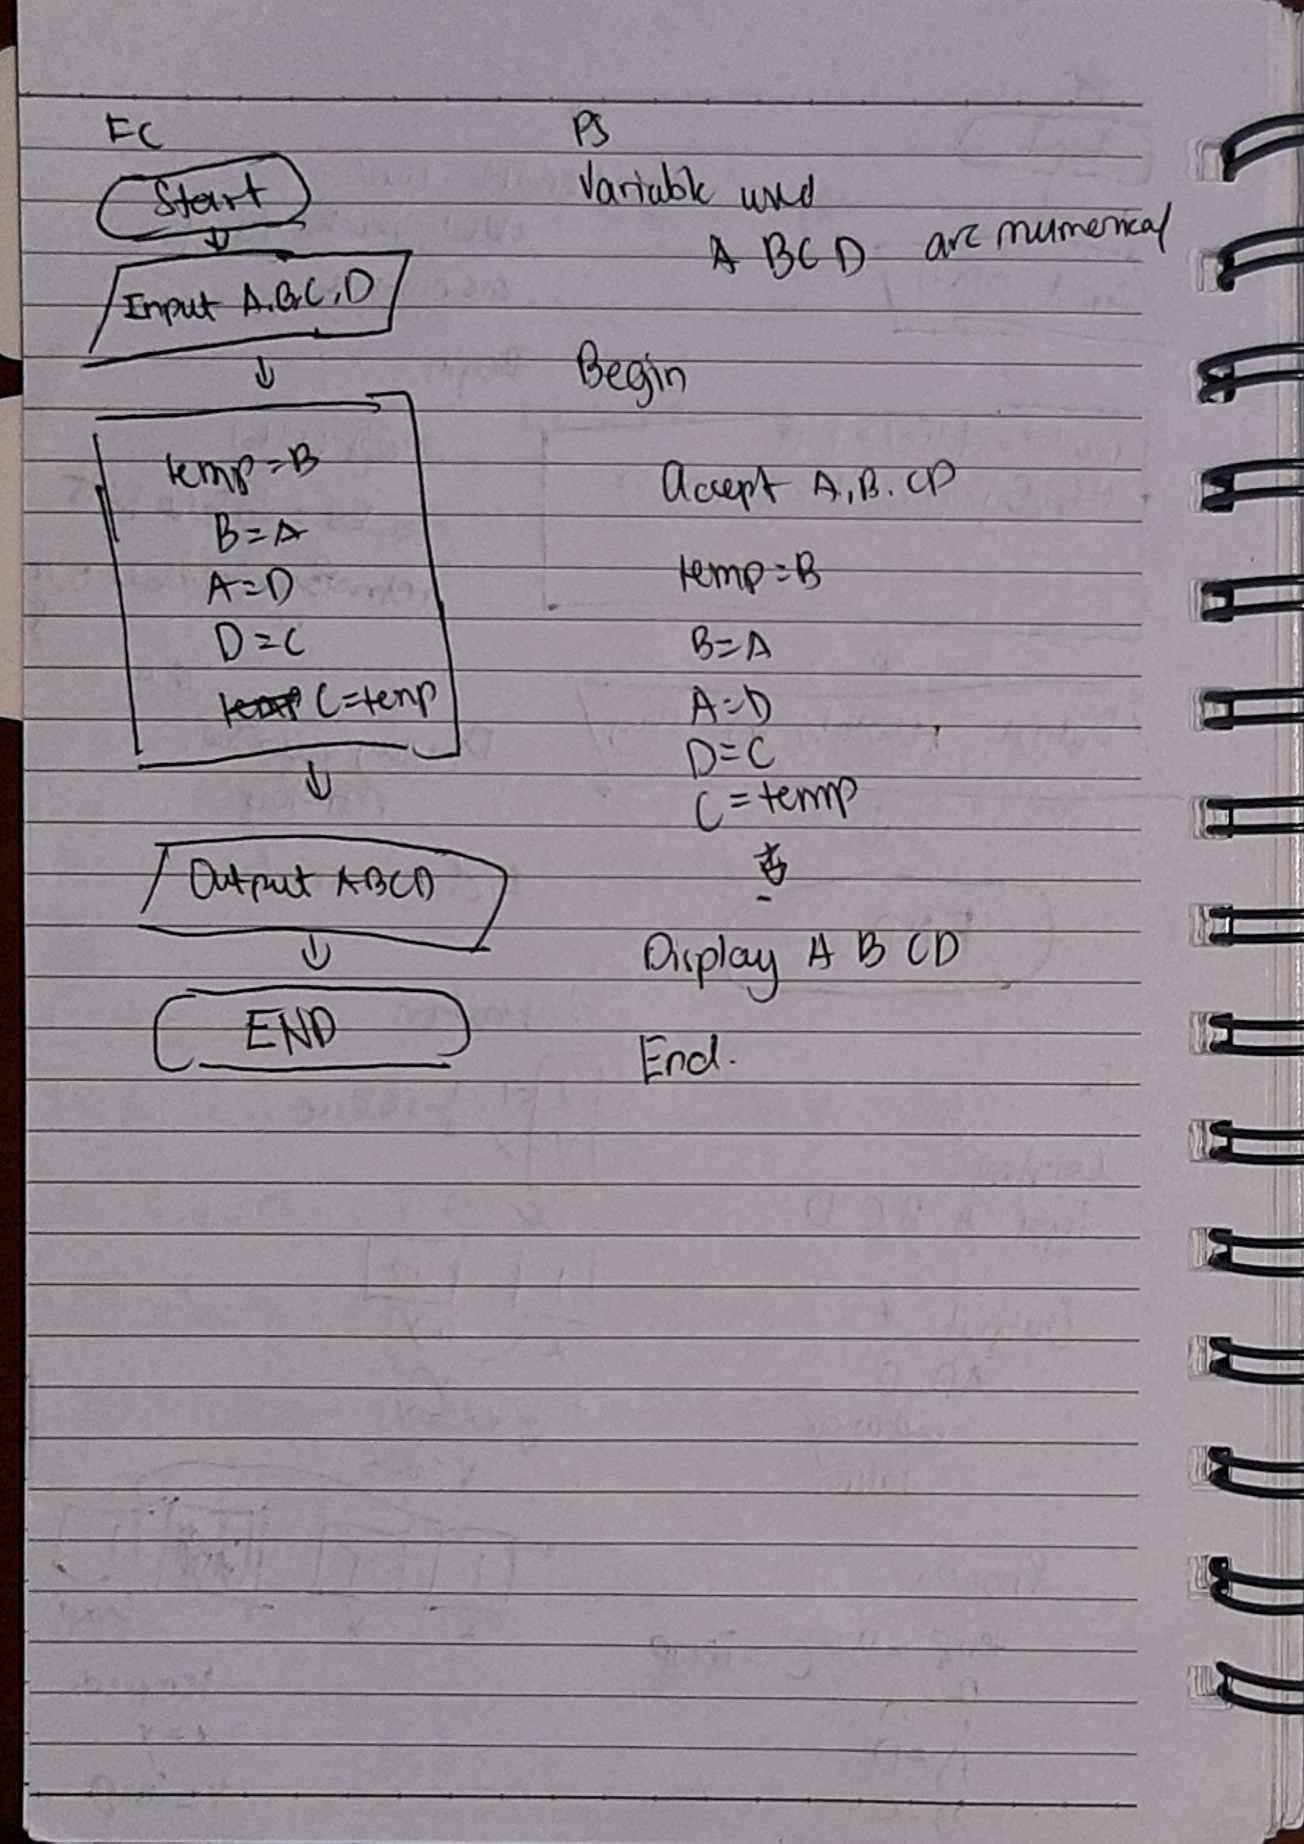 FC
Start
Input A,B,C,D
temp=B
B=A
A=D
D=C
C=temp
Output ABCD
END
PS
Variable used
A BCD are numerical
Begin
Accept A,B.CD
temp=B
B=A
A=D
D=C
C=temp
Display A B CD
End.